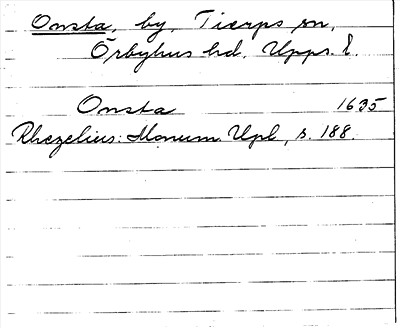 Onsta, by, Tierps sn,
Örbyhus hd. Upps. l.
Onsta 1635
Rhezelius: Monum. Upl, s. 188.